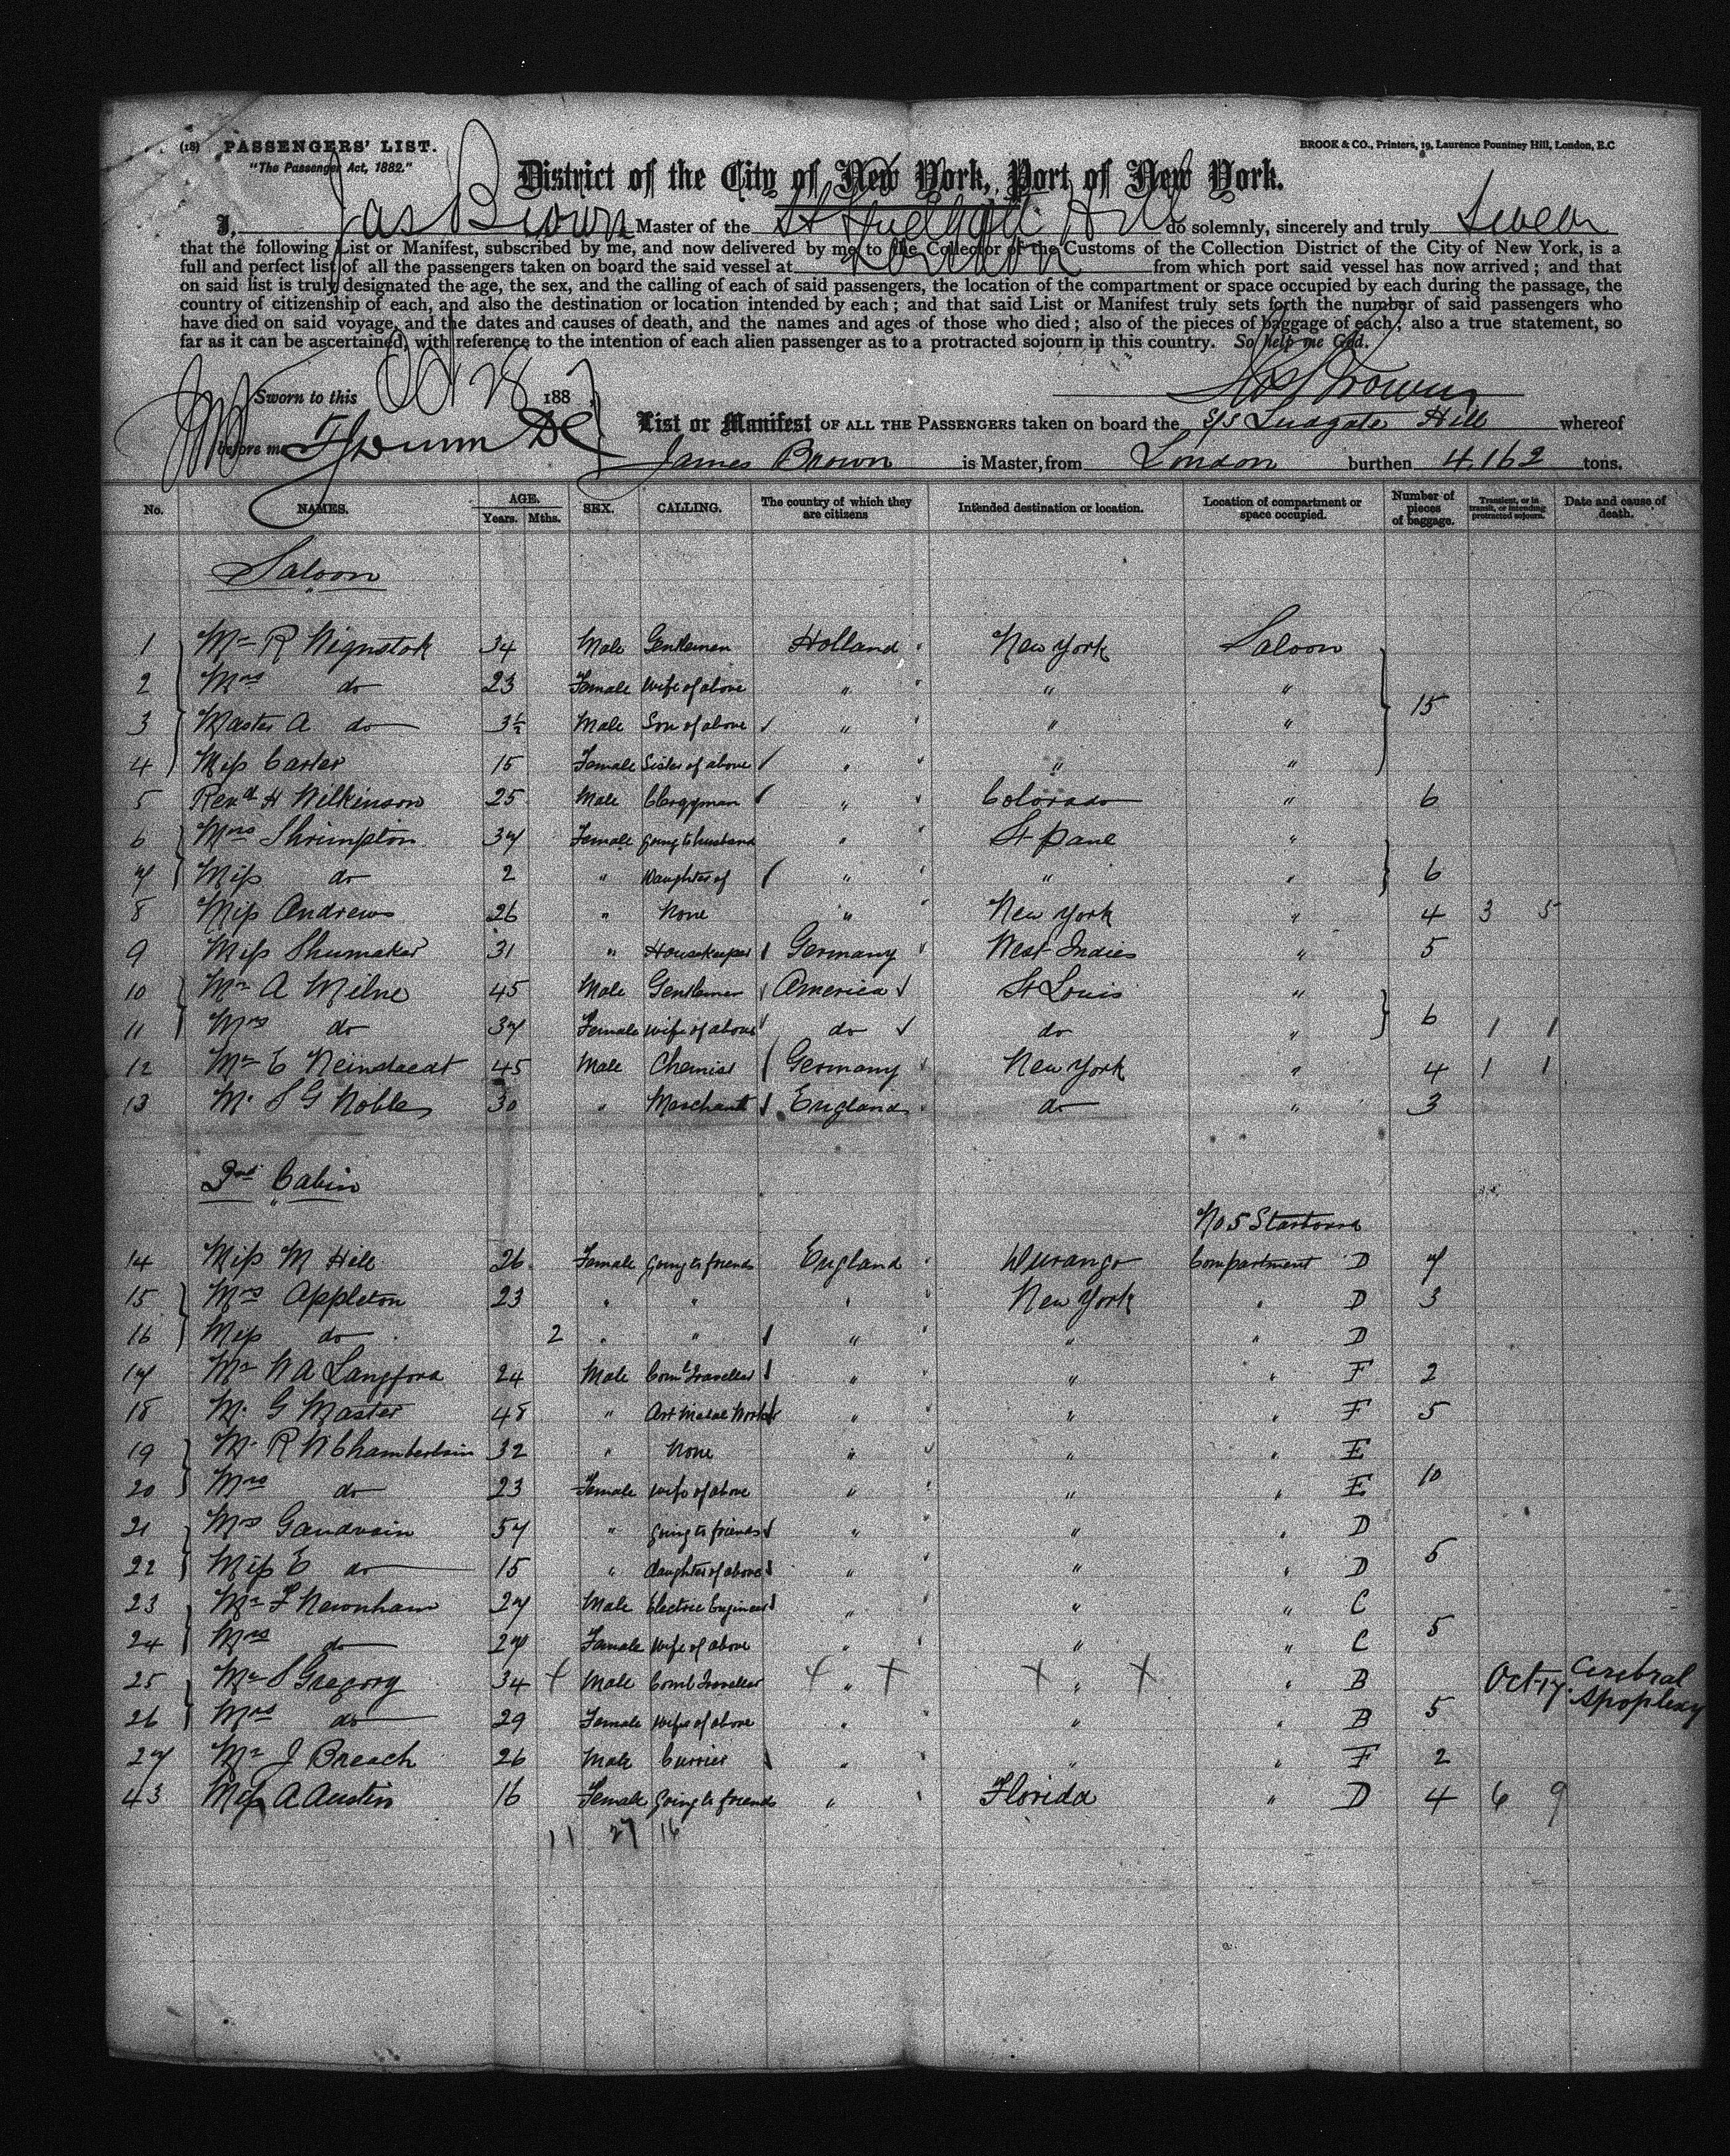 (18) PASSENGERS' LIST.
"The Passenger Act, 1882."
BROOK & CO., Printers, 19, Laurence Pountney Hill, London, E.C
District of the City of New York, Port of New York.
I, Jas Brown Master of the St Ludgate Hill do solemnly, sincerely and truly Swear
that the following List or Manifest, subscribed by me, and now delivered by me to the Collector of the Customs of the Collection District of the City of New York, is a
full and perfect list of all the passengers taken on board the said vessel at London from which port said vessel has now arrived; and that
on said list is truly designated the age, the sex, and the calling of each of said passengers, the location of the compartment or space occupied by each during the passage, the
country of citizenship of each, and also the destination or location intended by each; and that said List or Manifest truly sets forth the number of said passengers who
have died on said voyage, and the dates and causes of death, and the names and ages of those who died; also of the pieces of baggage of each; also a true statement, so
far as it can be ascertained, with reference to the intention of each alien passenger as to a protracted sojourn in this country. So help me God.
Sworn to this Oct 28 188
Jas Brown
before me
List or Manifest OF ALL THE PASSENGERS taken on board the S/S Ludgate Hill whereof
James Brown is Master, from London burthen 4,162 tons.
No. NAMES. AGE. Years. Mths. SEX. CALLING. The country of which they are citizens Intended destination or location. Location of compartment or space occupied. Number of pieces of baggage. Transient, or in transit, or intending protracted sojourn. Date and cause of death.
Saloon
1 Mr R Wignstok 34 Male Gentleman Holland New York Saloon
2 Mrs do 23 Female Wife of above " " "
3 Master A do 3½ Male Son of above " " " 15
4 Miss Carter 15 Female Sister of above " " "
5 Revd H Wilkinson 25 Male Clergyman " Colorado " 6
6 Mrs Shrimpton 37 Female going to husband " St Paul "
7 Miss do 2 " Daughter of " " " 6
8 Miss Andrews 26 " None " New York " 4 3 5
9 Miss Shumaker 31 " Housekeeper Germany West Indies " 5
10 Mr A Milne 45 Male Gentleman America St Louis "
11 Mrs do 37 Female Wife of above do do " 6 1 1
12 Mr E Neinstaedt 45 Male Chemist Germany New York " 4 1 1
13 Mr S G Nobles 30 " Merchant England do " 3
2nd Cabin
No 5 Starboard
14 Miss M Hill 26 Female going to friends England Durango Compartment D 7
15 Mrs Appleton 23 " " " New York " D 3
16 Miss do 2 " " " " " D
17 Mr W A Langford 24 Male Coml Traveller " " " F 2
18 Mr G Master 48 " Art Metal Worker " " " F 5
19 Mr R W Chamberlain 32 " None " " " E
20 Mrs do 23 Female Wife of above " " " E 10
21 Mrs Gaudvain 57 " going to friends " " " D
22 Miss E do 15 " daughter of above " " " D 5
23 Mr F Newnham 27 Male Electric Engineer " " " C
24 Mrs do 27 Female Wife of above " " " C 5
25 Mr S Gregory 34 Male Coml Traveller " " " B Oct 17. Cerebral Apoplexy
26 Mrs do 29 Female Wife of above " " " B 5
27 Mr J Breach 26 Male Currier " " " F 2
43 Miss A Austin 16 Female going to friends " Florida " D 4 6 9
11 27 16